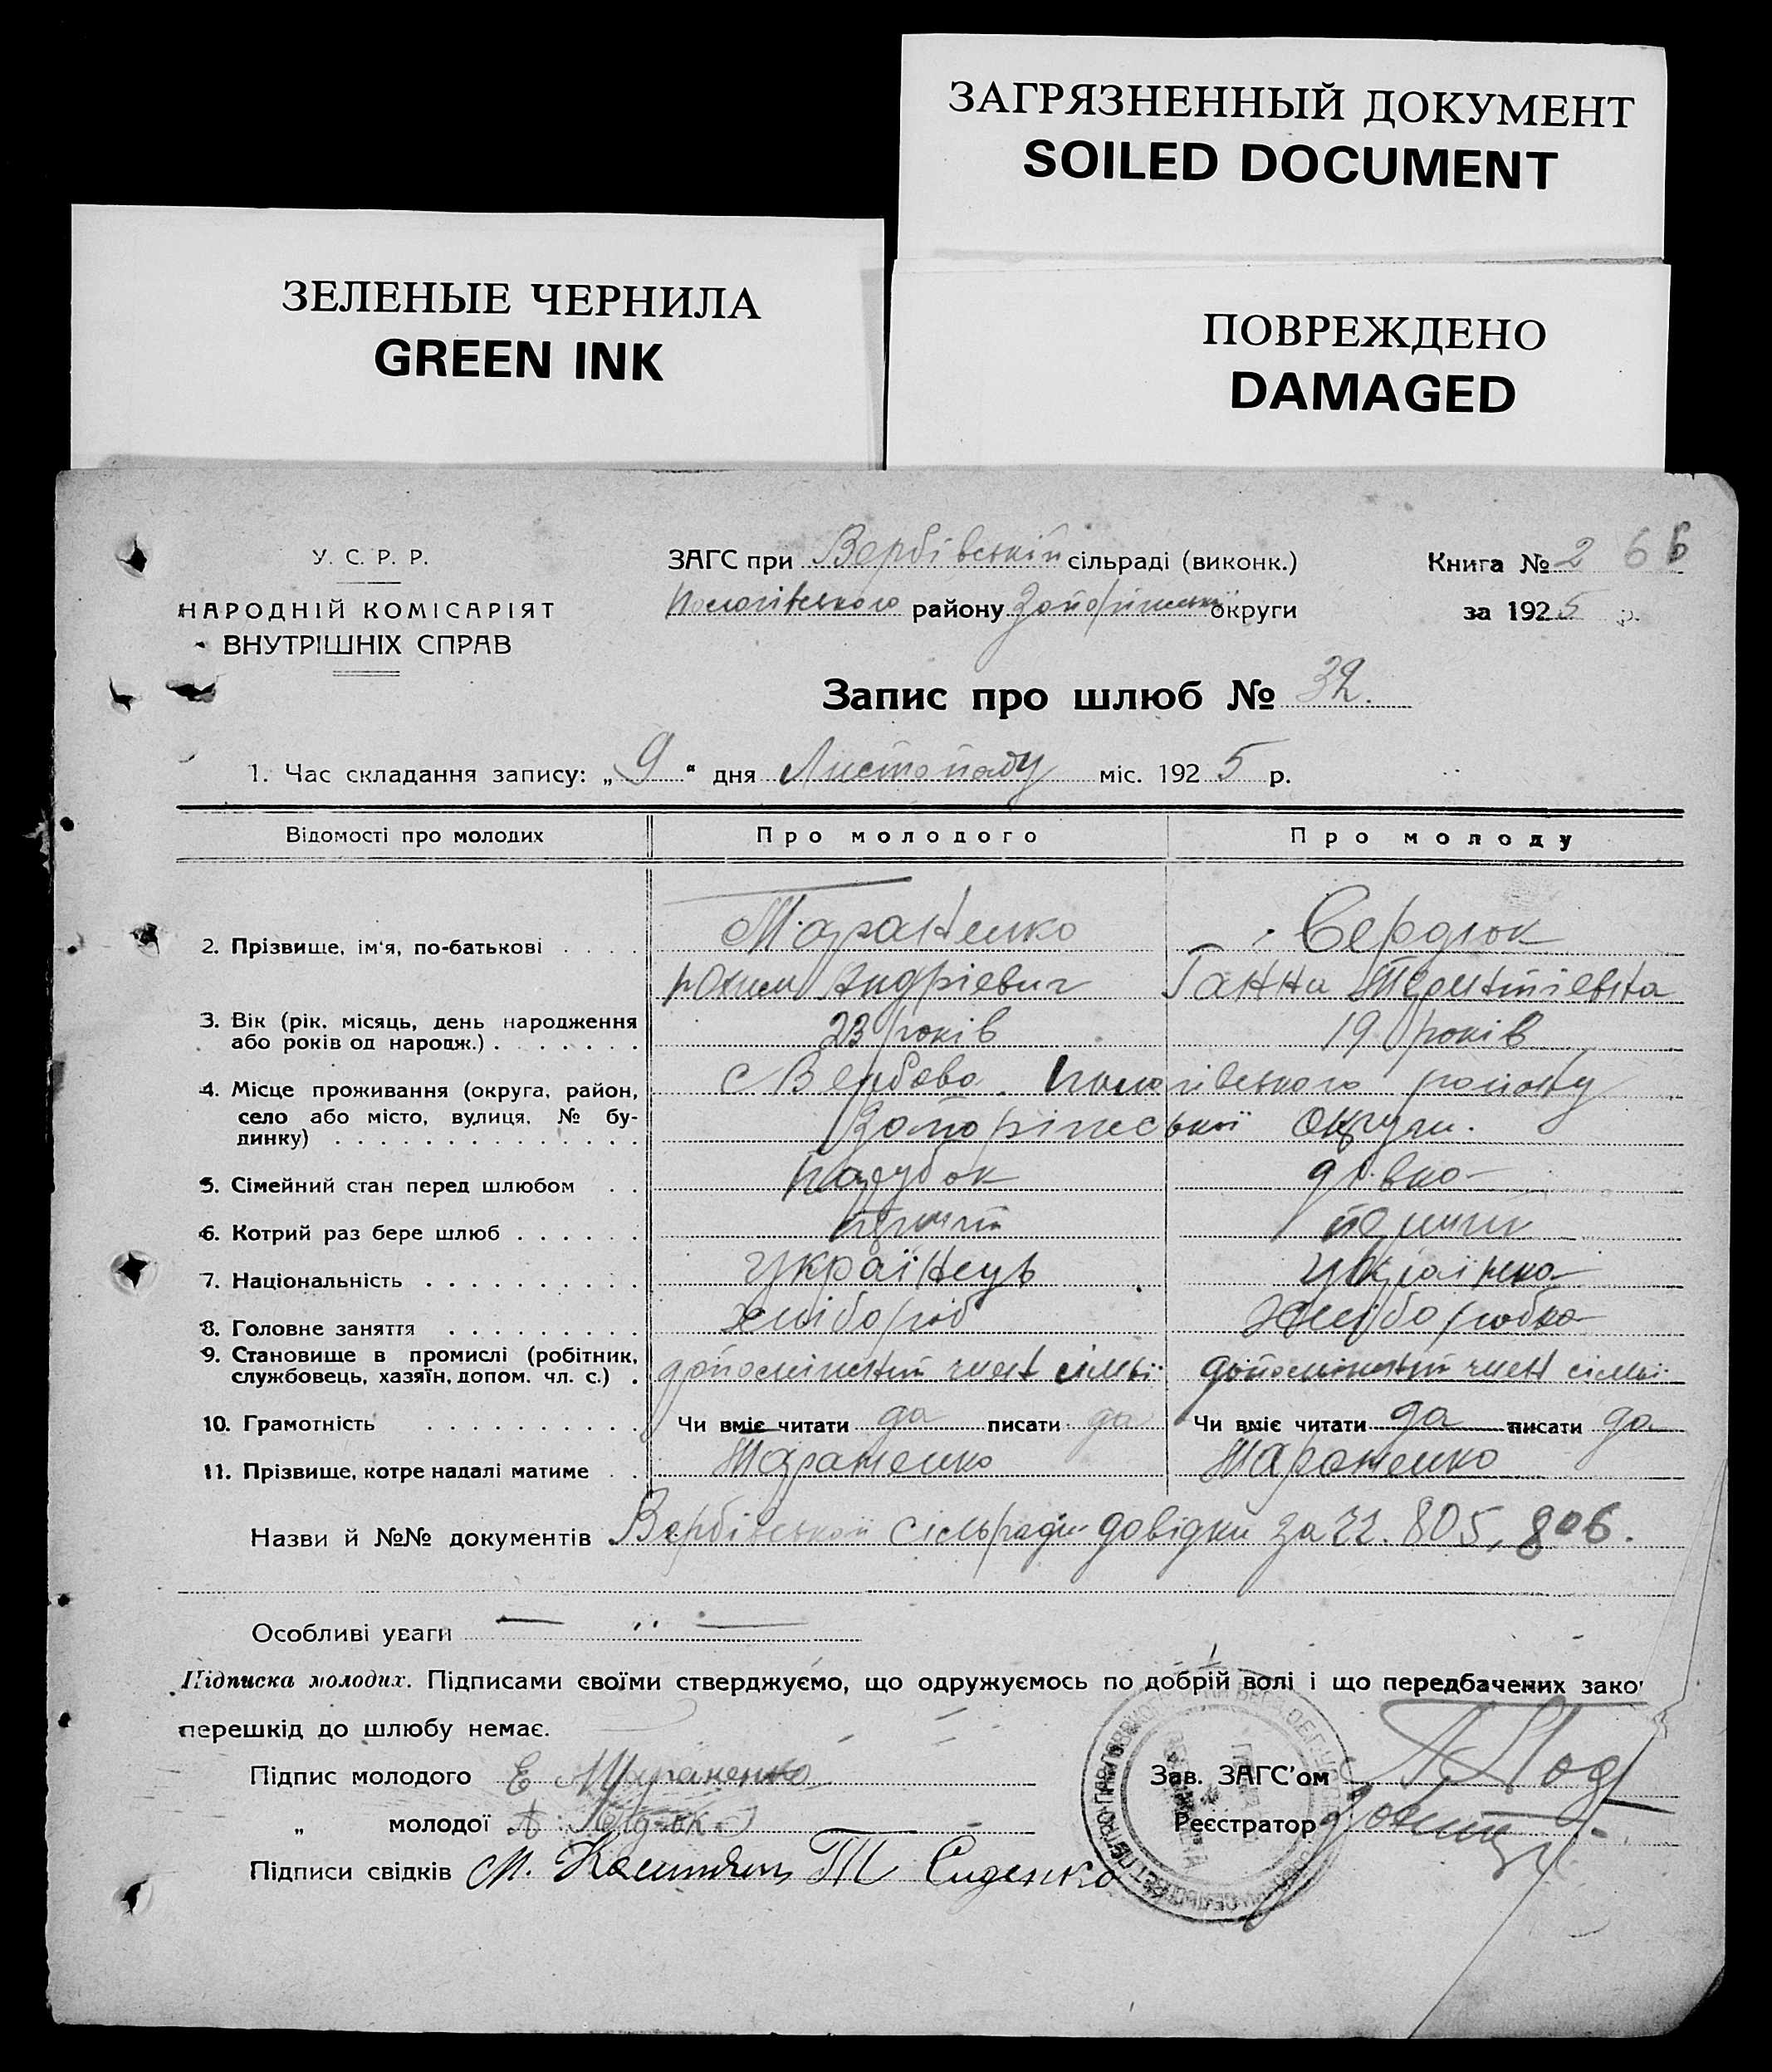 ЗАГРЯЗНЕННЫЙ ДОКУМЕНТ
SOILED DOCUMENT
ЗЕЛЕНЫЕ ЧЕРНИЛА
GREEN INK
ПОВРЕЖДЕНО
DAMAGED
У. С. Р. Р.
НАРОДНІЙ КОМІСАРІЯТ
ВНУТРІШНІХ СПРАВ
ЗАГС при Вербівській сільраді (виконк.)
Пологівського району Запоріжської округи
Книга № 2 66
за 1925 р.
Запис про шлюб № 32.
1. Час складання запису: „ 9 “ дня Листопаду міс. 1925 р.
Відомості про молодих Про молодого Про молоду
2. Прізвище, ім‘я, по-батькові . . . . Тараненко Сердюк
Андрієвич Ганна Терентіевна
3. Вік (рік, місяць, день народження 23 років 19 років
або років од народж.) . . . . . . .
4. Місце проживання (округа, район, с Вербово. Пологівського району
село або місто, вулиця, № бу- Запоріжської округи.
динку) . . . . . . . . . . . . . .
5. Сімейний стан перед шлюбом . . Парубок дівка
6. Котрий раз бере шлюб . . . . . .
7. Національність . . . . . . . . . . Українець українка
8. Головне заняття . . . . . . . . . хлібороб хліборобка
9. Становище в промислі (робітник, допоміжний член сімьї допоміжний член сімьї
службовець, хазяїн, допом. чл. с.) .
10. Грамотність . . . . . . . . . . Чи вміє читати да писати да Чи вміє читати да писати да
11. Прізвище, котре надалі матиме . . Тараненко Тараненко
Назви й №№ документів Вербівської сільради довідки за 805, 806.
Особливі уваги — " —
Підписка молодих. Підписами своїми стверджуємо, що одружуємось по добрій волі і що передбачених зако
перешкід до шлюбу немає.
Підпис молодого Е Тараненко
Зав. ЗАГС’ом
„ молодої А.
Реєстратор
Підписи свідків М. Т Сиденко